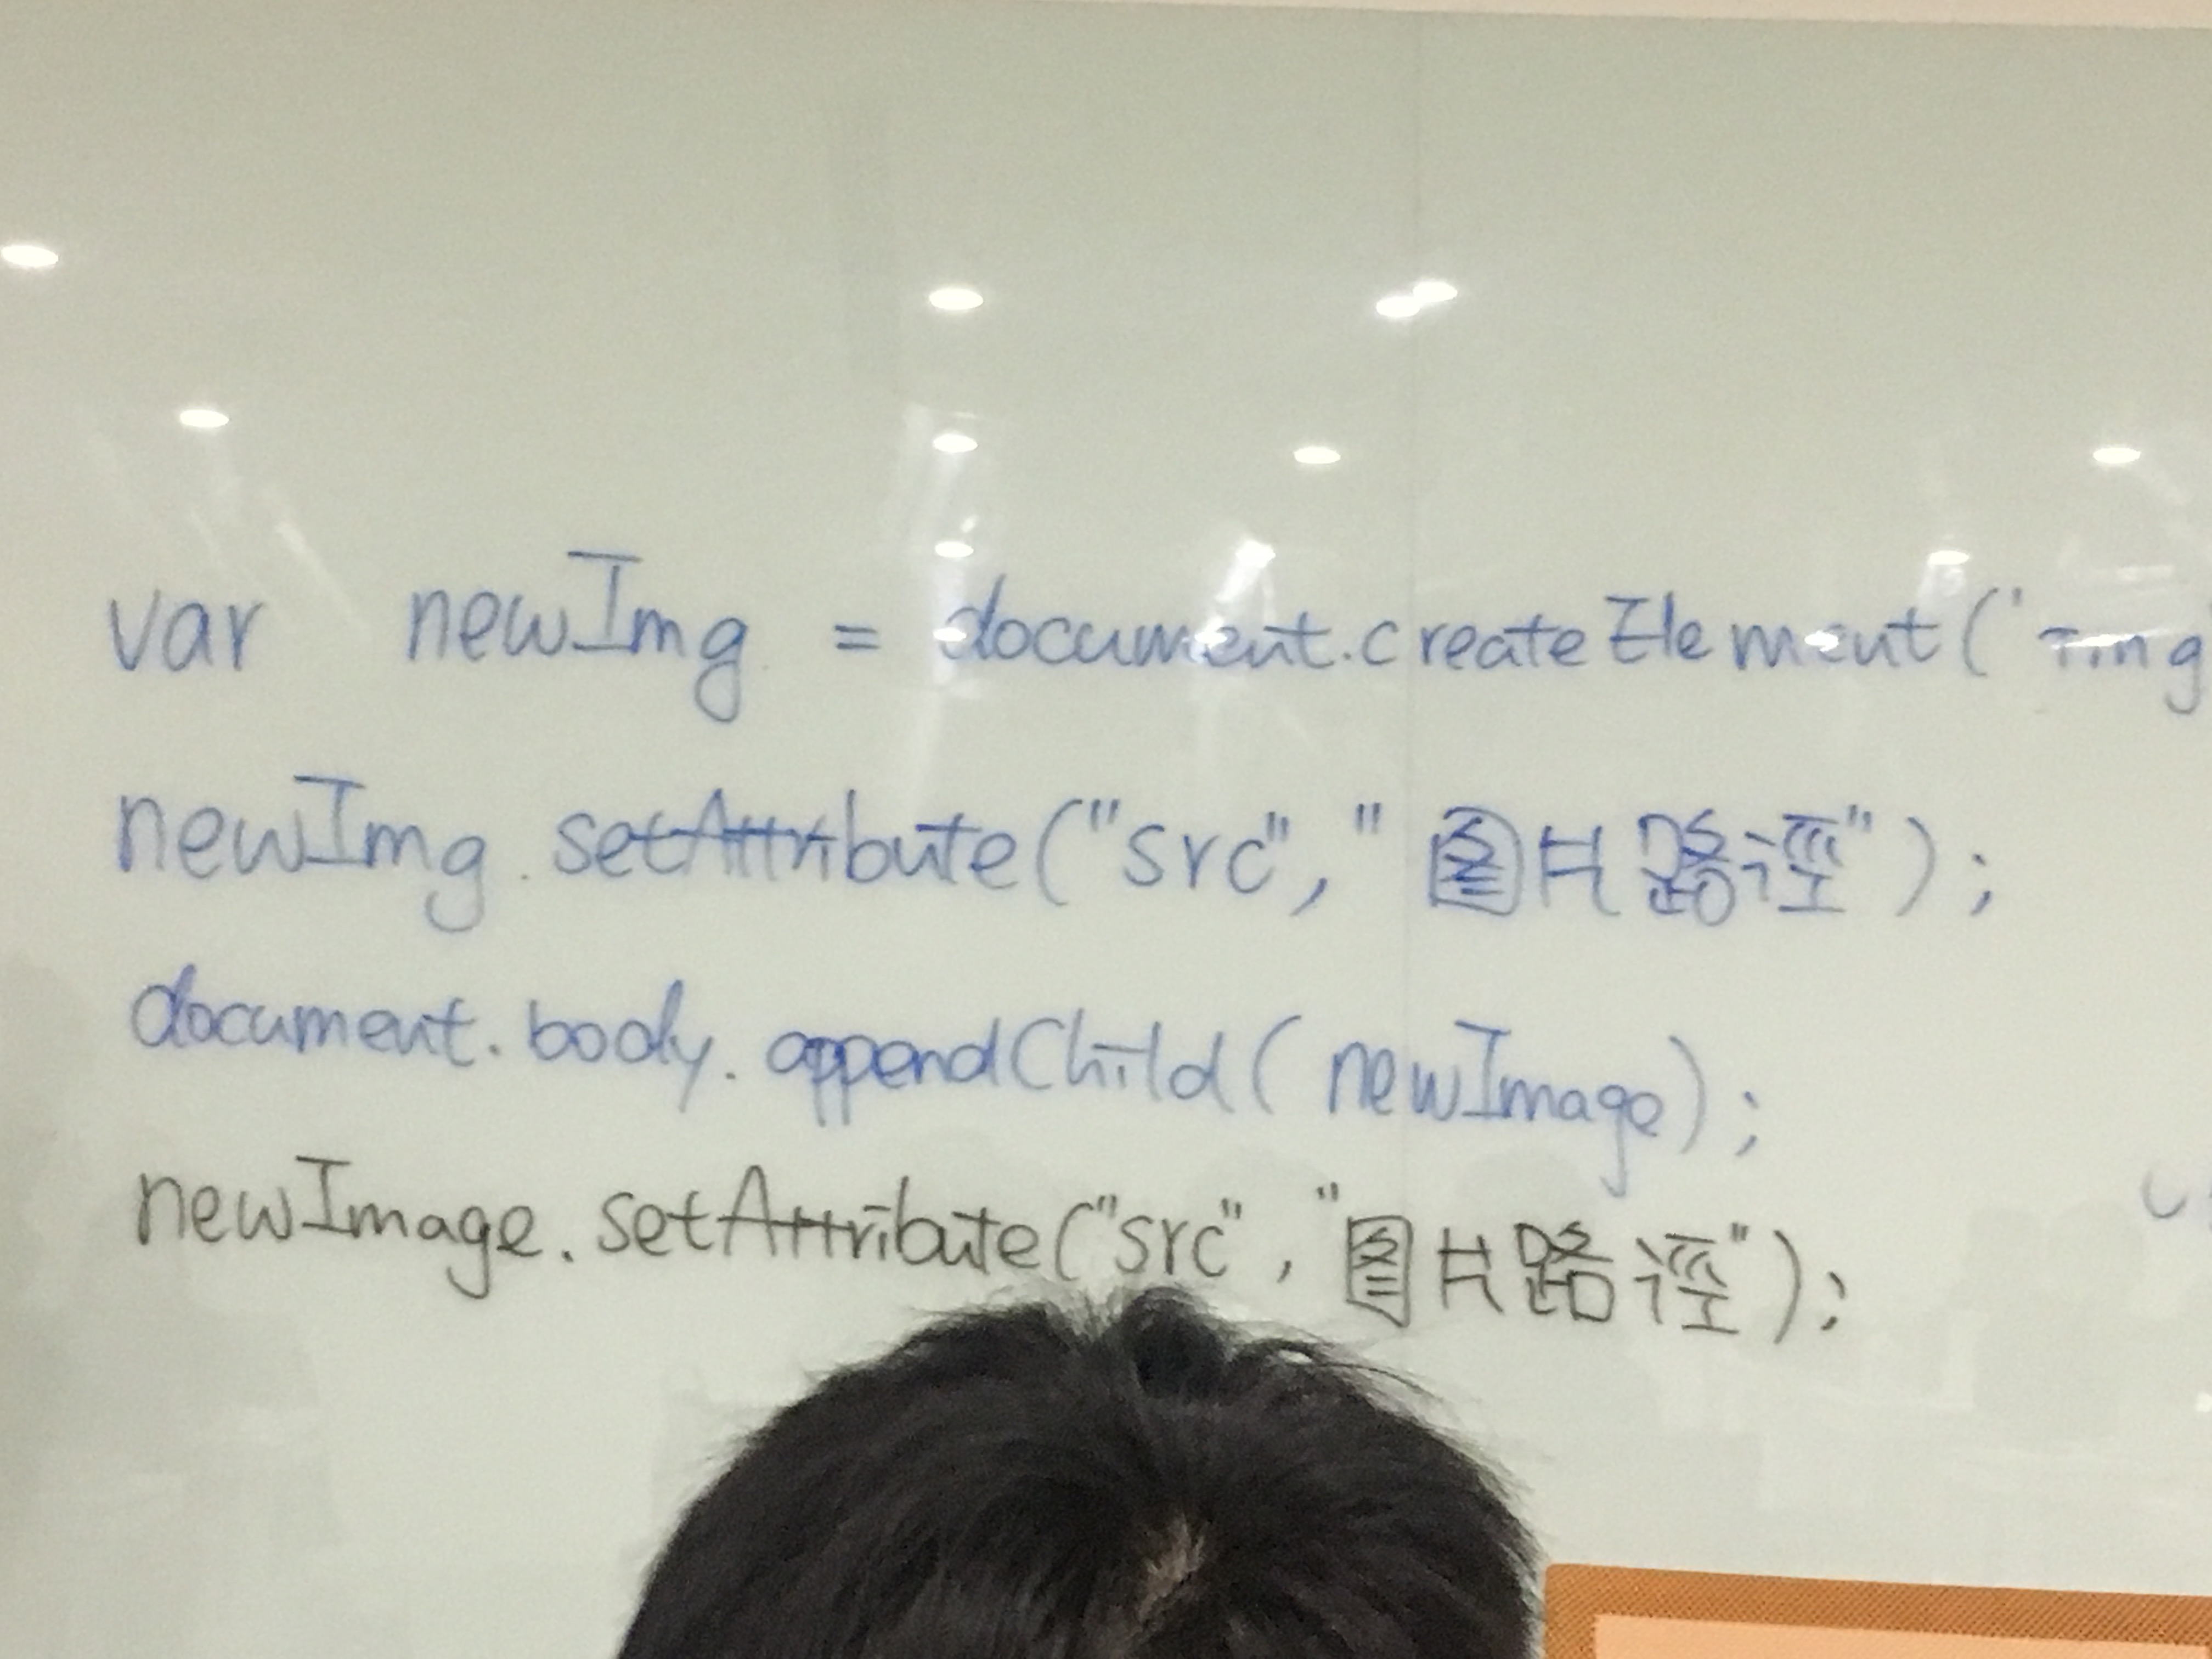 var newImg = document.createElement('img
newImg.setAttribute("src","图片路径");
document.body.appendChild(newImage);
newImage.setAttribute("src","图片路径");